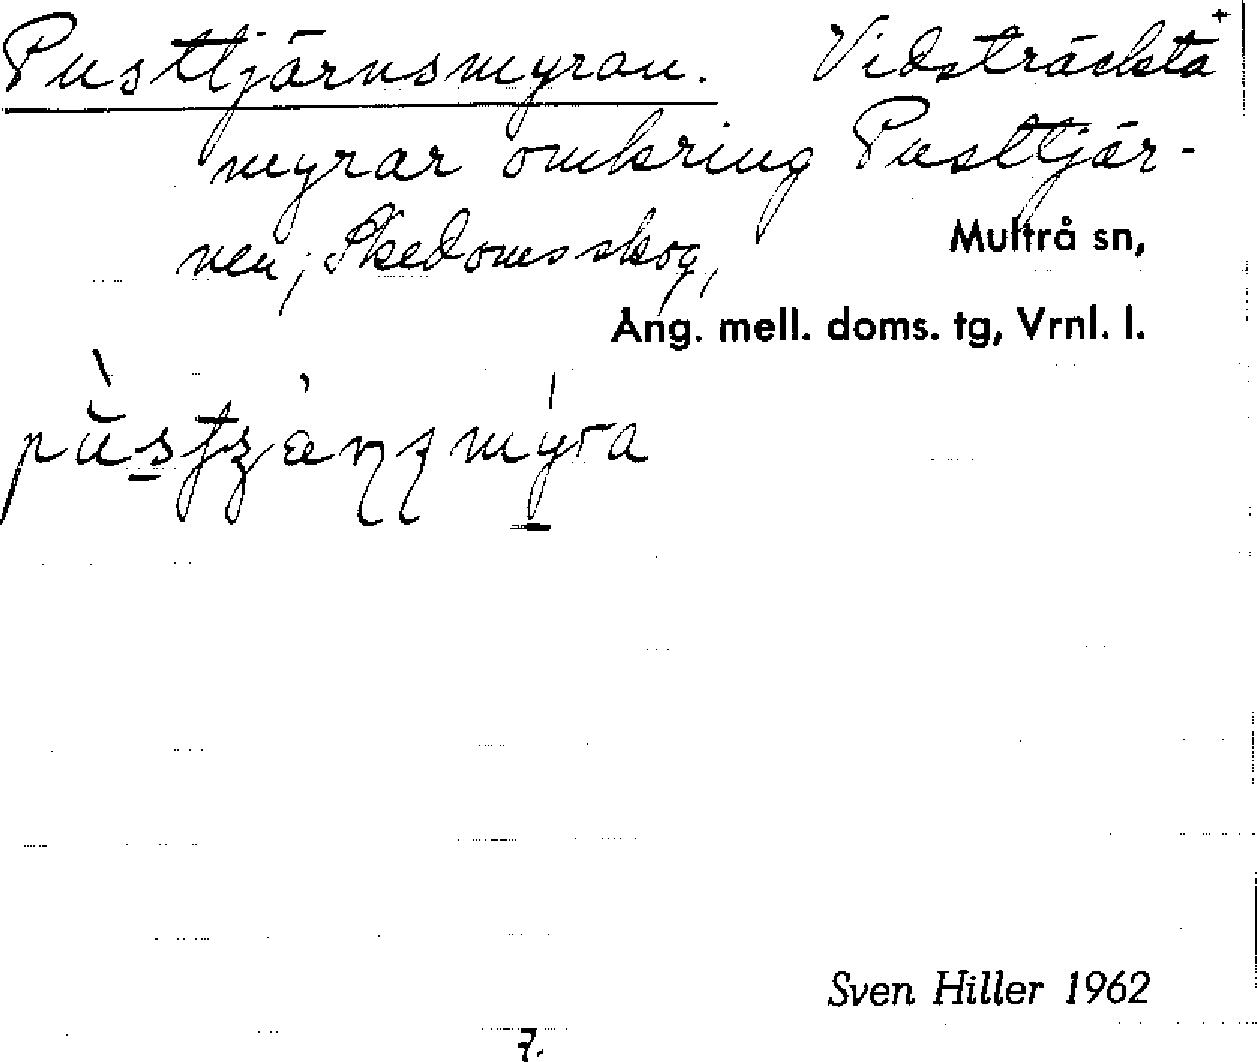 Pusttjärnsmyran. Vidsträckta+
myrar omkring Pusttjär-
nen, Skedomsskog,
Multrå sn,
Ång. mell. doms. tg, Vrnl. l.
Sven Hiller 1962
7.